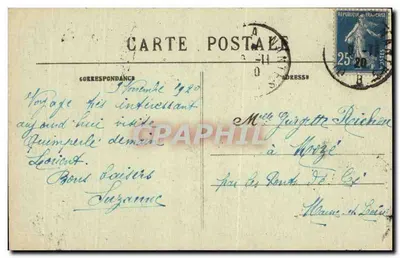 CARTE POSTALE
CORRESPONDANCE
ADRESSE
REPUBLIQUE FRANCAISE
25
Novembre 1920
Voyage très intéressant
aujourd'hui visite
Quimperlé demain
Lorient.
Bons baisers
Suzanne
CPARAMA.COM
Melle Georgette Richou
à Mozé
par les Ponts de Cé
Maine et Loire